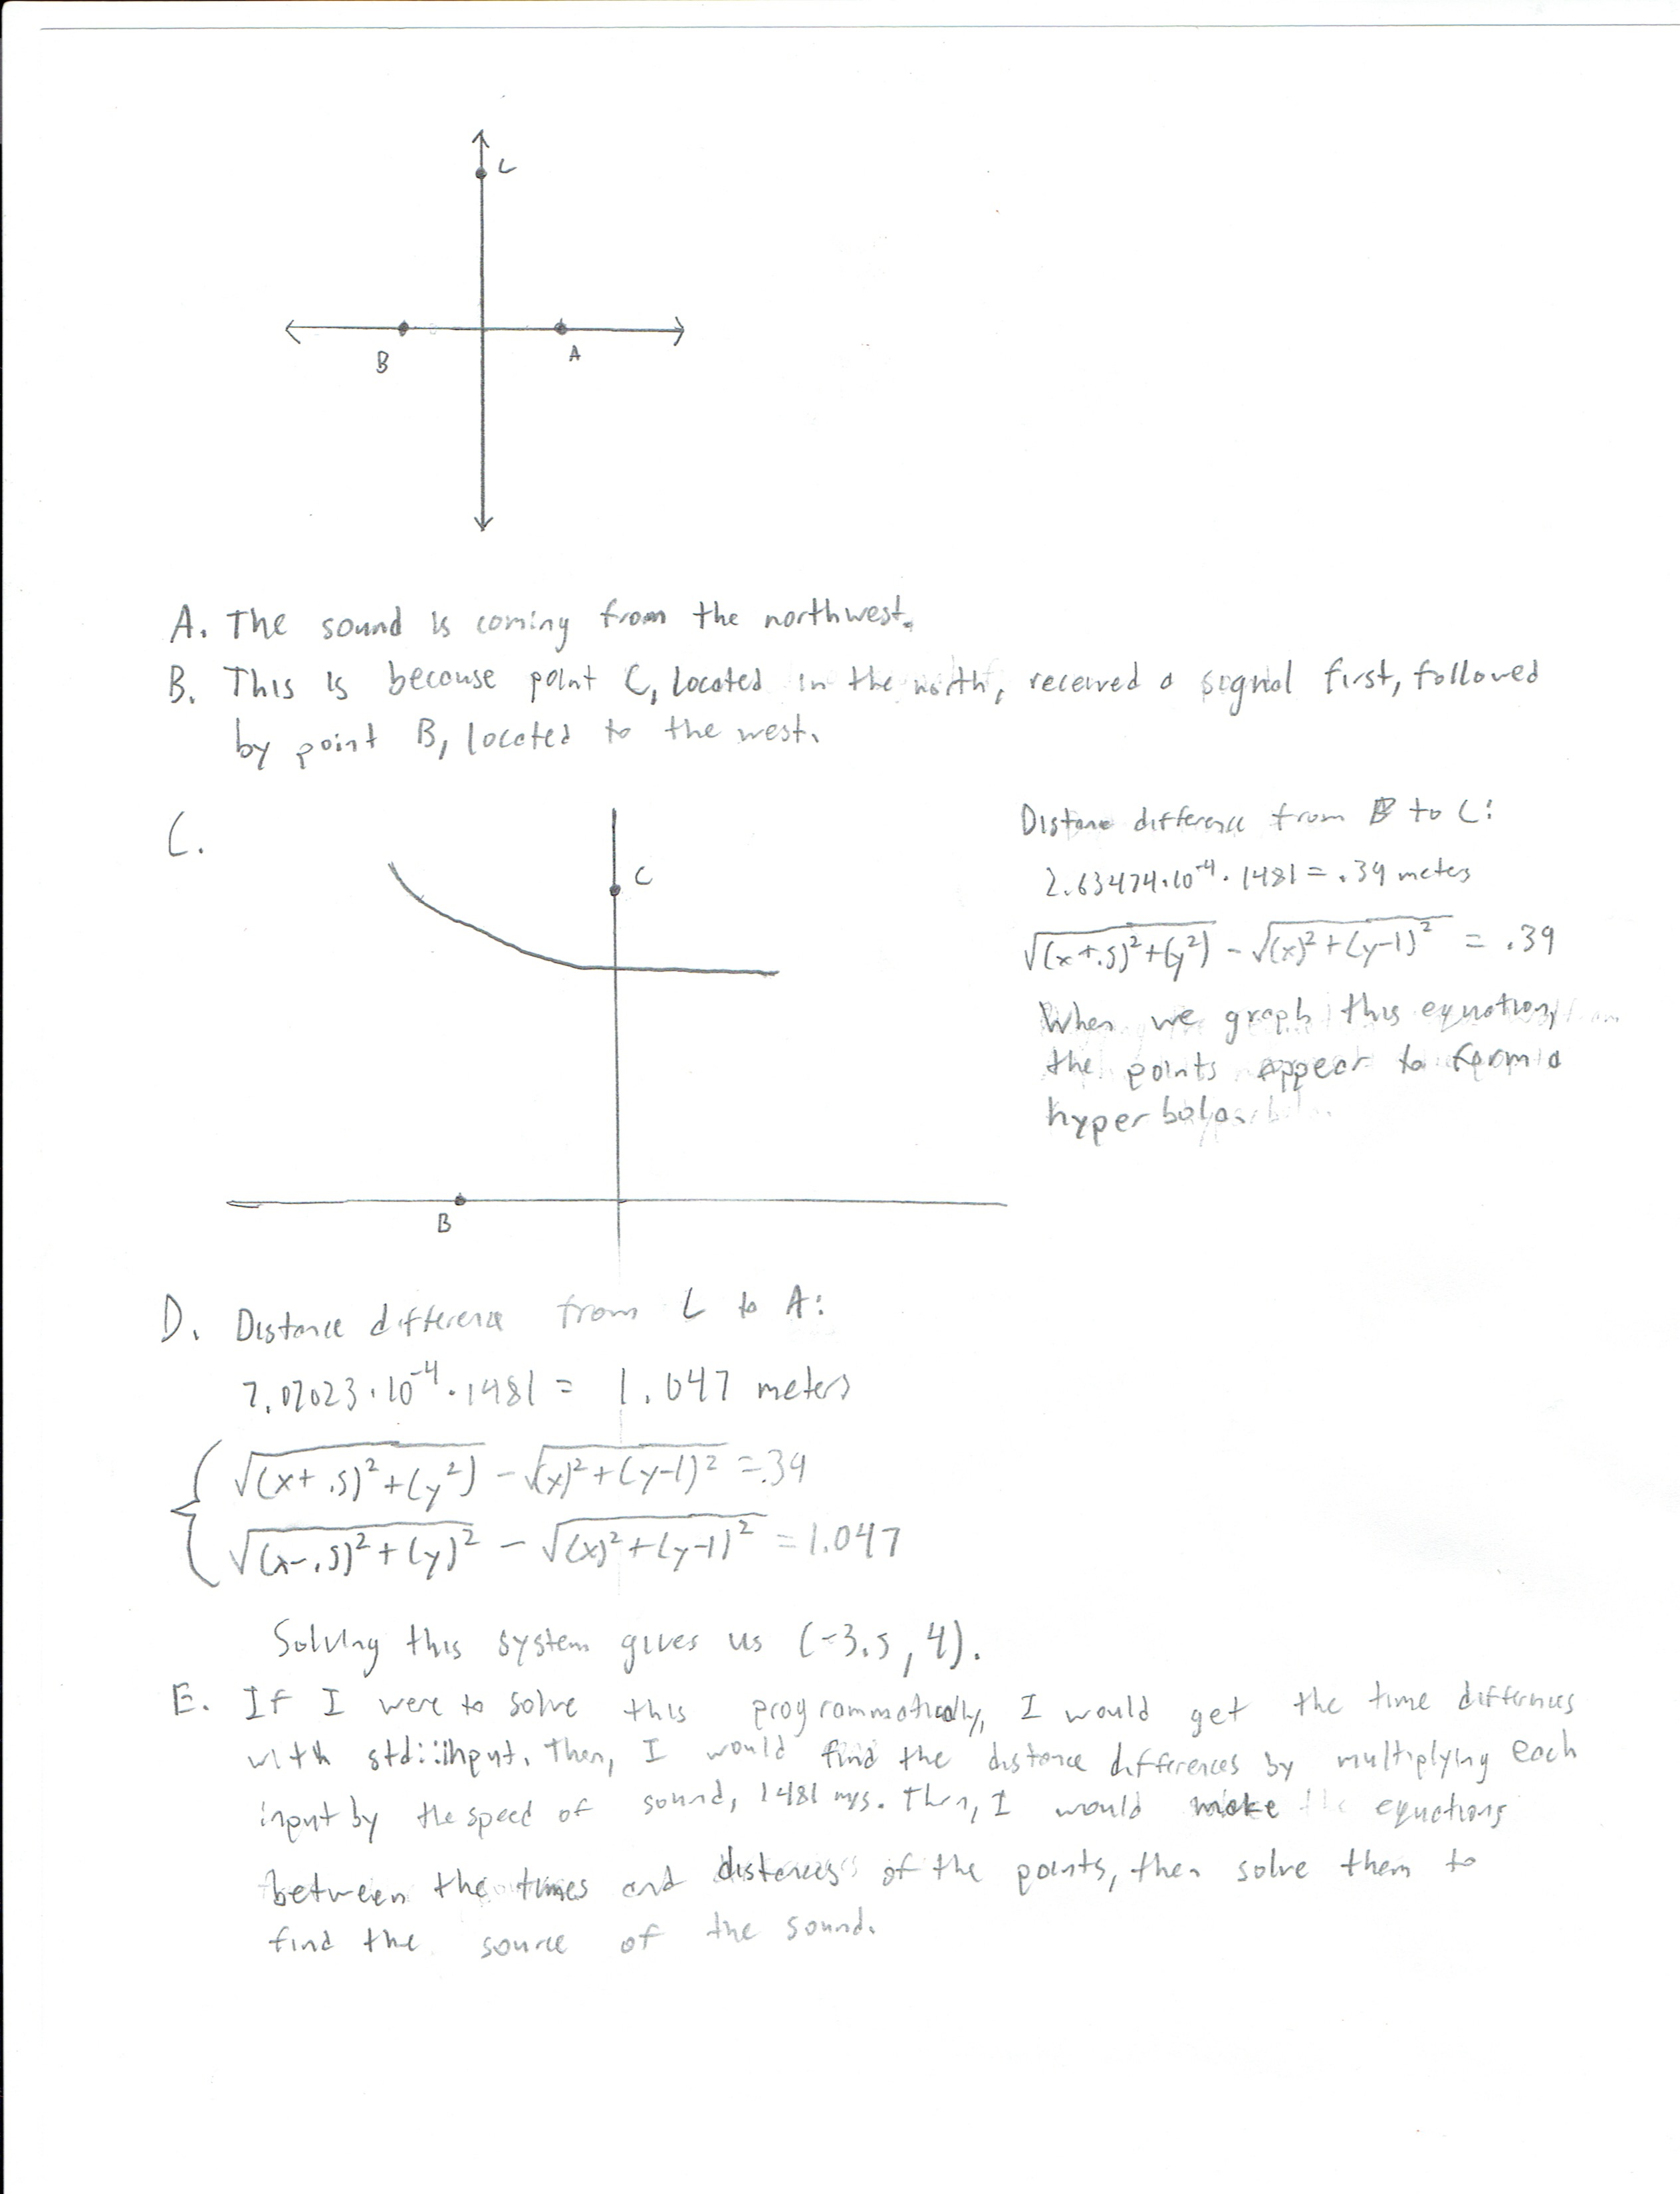 C
B
A
A. The sound is coming from the northwest.
B. This is because point C, located in the north, received a signal first, followed
by point B, located to the west.
C.
C
B
Distance difference from B to C:
2.63474·10⁻⁴·1481 = .39 meters
√((x+.5)²+(y²)) - √((x)²+(y-1)²) = .39
When we graph this equation,
the points appear to form a
hyperbola.
D. Distance difference from C to A:
7.07023·10⁻⁴·1481 = 1.047 meters
√((x+.5)²+(y²)) - √((x)²+(y-1)²) = .39
√((x-.5)²+(y)²) - √((x)²+(y-1)²) = 1.047
Solving this system gives us (-3.5, 4).
E. If I were to solve this programmatically, I would get the time differences
with std::input. Then, I would find the distance differences by multiplying each
input by the speed of sound, 1481 m/s. Then, I would make the equations
between the times and distances of the points, then solve them to
find the source of the sound.